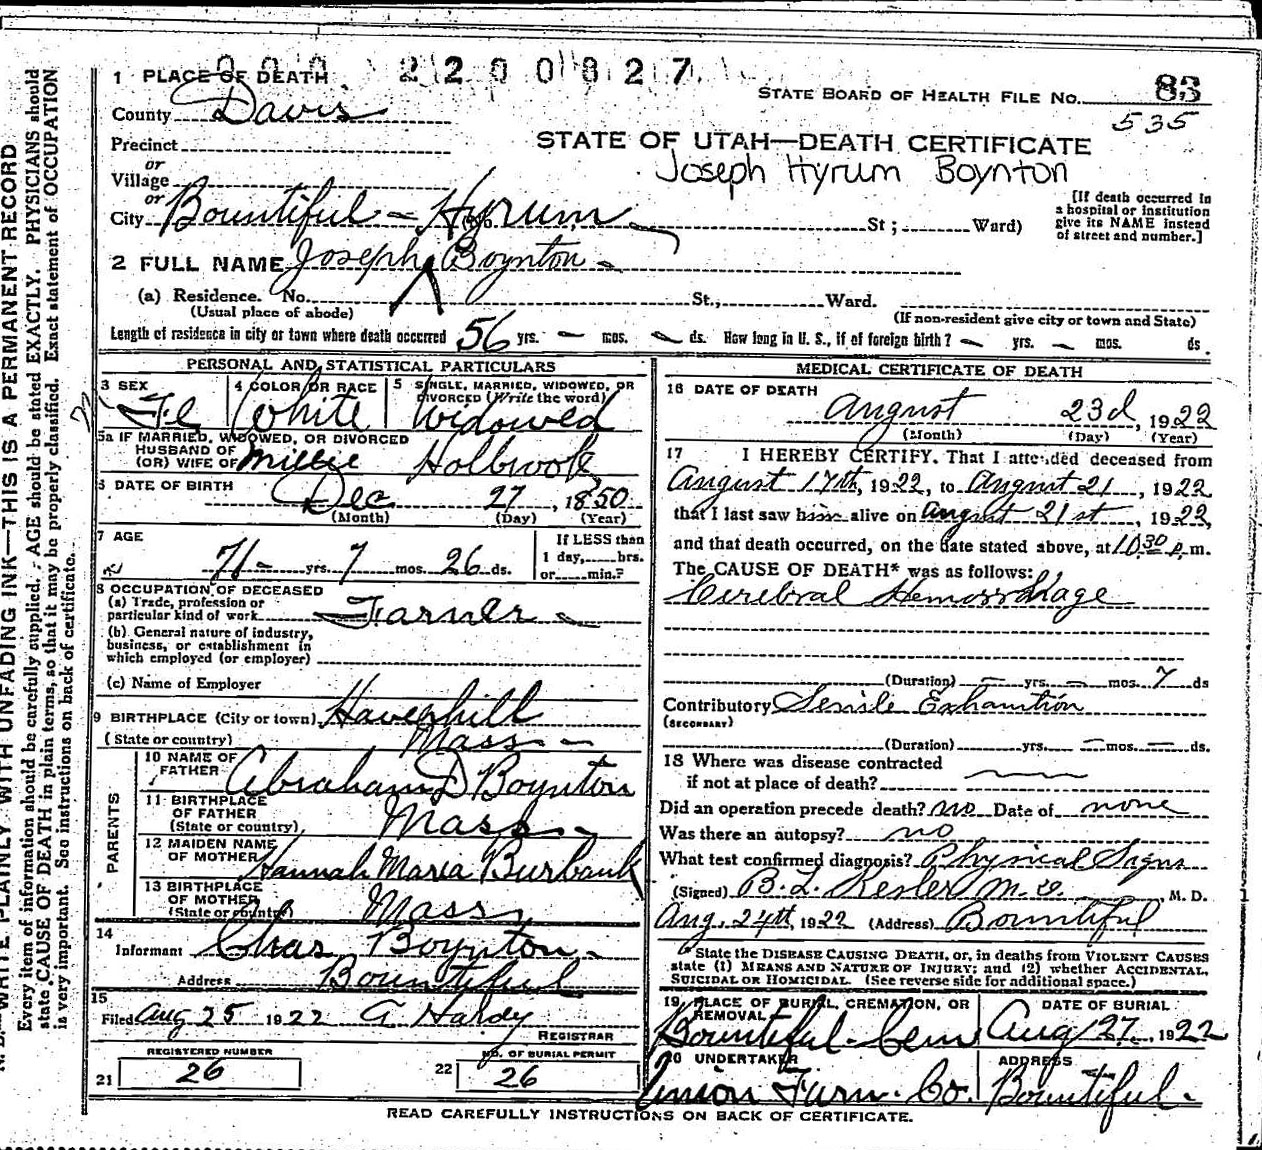 000 2200827
1 PLACE OF DEATH
STATE BOARD OF HEALTH FILE NO. 83
535
County Davis
STATE OF UTAH—DEATH CERTIFICATE
Precinct
Joseph Hyrum Boynton
or
Village
or
City Bountiful - St; Ward)
[If death occurred in a hospital or institution give its NAME instead of street and number.]
Hyrum
2 FULL NAME Joseph Boynton
(a) Residence. No. St., Ward.
(Usual place of abode) (If non-resident give city or town and State)
Length of residence in city or town where death occurred 56 yrs. — mos. — ds. How long in U. S., if of foreign birth? — yrs. — mos. ds.
PERSONAL AND STATISTICAL PARTICULARS
3 SEX 4 COLOR OR RACE White 5 SINGLE, MARRIED, WIDOWED, OR DIVORCED (Write the word) Widowed
5a IF MARRIED, WIDOWED, OR DIVORCED
HUSBAND OF
(OR) WIFE OF Millie Holbrook
6 DATE OF BIRTH Dec 27, 1850
(Month) (Day) (Year)
7 AGE 71 yrs. 7 mos. 26 ds.
If LESS than 1 day, hrs. or min.?
8 OCCUPATION OF DECEASED
(a) Trade, profession or
particular kind of work Farmer
(b) General nature of industry,
business, or establishment in
which employed (or employer)
(c) Name of Employer
9 BIRTHPLACE (City or town) Haverhill
(State or country) Mass
PARENTS
10 NAME OF FATHER Abraham D Boynton
11 BIRTHPLACE OF FATHER
(State or country) Mass
12 MAIDEN NAME OF MOTHER Hannah Maria Burbank
13 BIRTHPLACE OF MOTHER
(State or country) Mass
14 Informant Chas Boynton
Address Bountiful
15 Filed Aug 25 1922 A Hardy
REGISTRAR
REGISTERED NUMBER NO. OF BURIAL PERMIT
21 26 22 26
MEDICAL CERTIFICATE OF DEATH
16 DATE OF DEATH
August 23d, 1922
(Month) (Day) (Year)
17 I HEREBY CERTIFY, That I attended deceased from
August 17th, 1922, to August 21, 1922
that I last saw him alive on August 21st, 1922,
and that death occurred, on the date stated above, at 10:30 p.m.
The CAUSE OF DEATH* was as follows:
Cerebral Hemorrhage
(Duration) — yrs. — mos. 7 ds
Contributory Senile Exhaustion
(SECONDARY)
(Duration) yrs. — mos. — ds.
18 Where was disease contracted
if not at place of death?
Did an operation precede death? no Date of none
Was there an autopsy? no
What test confirmed diagnosis? Physical Signs
(Signed) B. L. Kesler M.D. , M. D.
Aug. 24th, 1922 (Address) Bountiful
* State the DISEASE CAUSING DEATH, or, in deaths from VIOLENT CAUSES
state (1) MEANS AND NATURE OF INJURY; and (2) whether ACCIDENTAL,
SUICIDAL OR HOMICIDAL. (See reverse side for additional space.)
19 PLACE OF BURIAL, CREMATION, OR REMOVAL DATE OF BURIAL
Bountiful Cem Aug 27, 1922
20 UNDERTAKER ADDRESS
Union Furn. Co. Bountiful.
READ CAREFULLY INSTRUCTIONS ON BACK OF CERTIFICATE.
WRITE PLAINLY WITH UNFADING INK—THIS IS A PERMANENT RECORD
Every item of information should be carefully supplied. AGE should be stated EXACTLY. PHYSICIANS should
state CAUSE OF DEATH in plain terms, so that it may be properly classified. Exact statement of OCCUPATION
is very important. See instructions on back of certificate.